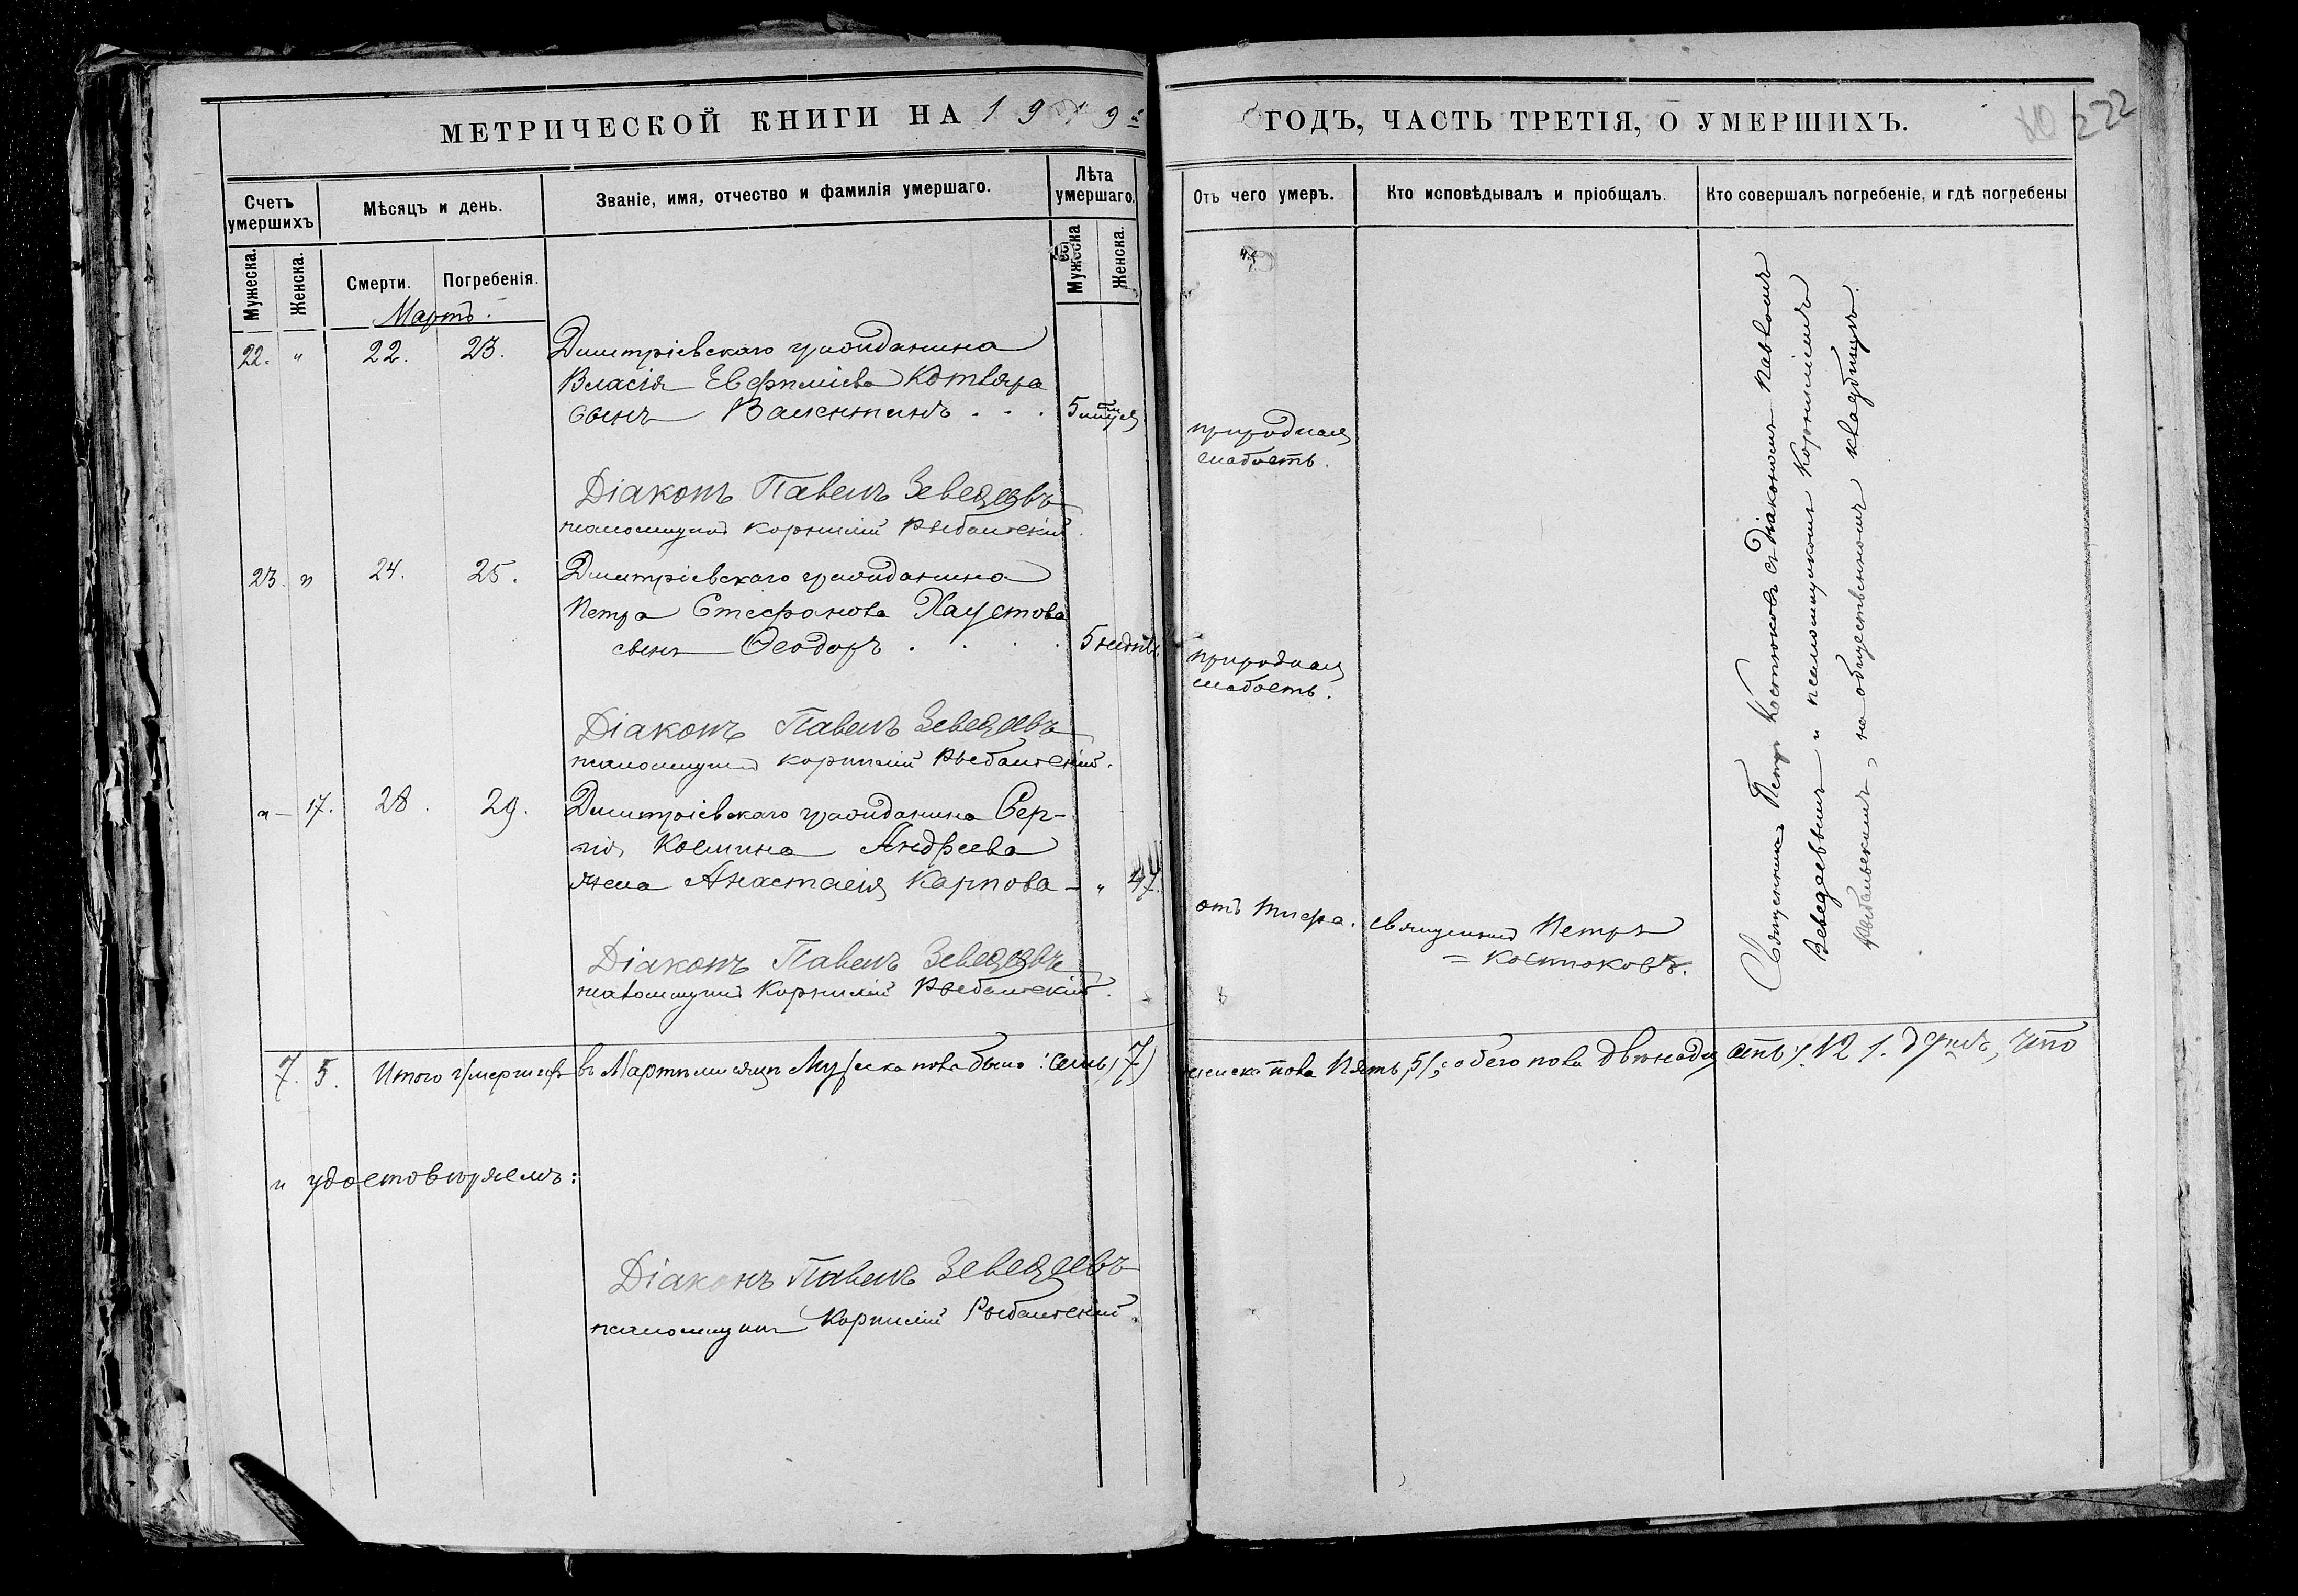 МЕТРИЧЕСКОЙ КНИГИ НА 1919 ГОДЪ, ЧАСТЬ ТРЕТІЯ, О УМЕРШИХЪ.
222
Счетъ умершихъ
Мѣсяцъ и день.
Званіе, имя, отчество и фамилія умершаго.
Лѣта умершаго.
Отъ чего умеръ.
Кто исповѣдывалъ и пріобщалъ.
Кто совершалъ погребеніе, и гдѣ погребены
Мужеска.
Женска.
Смерти.
Погребенія.
Мужеска
Женска.
Мартъ.
22. " 22. 23. Димитріевскаго гражданина
Власія Евфиміева Котляра
сынъ Валентинъ . . . 5 мѣсяц
природная
слабость.
Діаконъ Павелъ Зеведеевъ
псаломщикъ Корнилій Рыбальскій.
23. " 24. 25. Димитріевскаго гражданина
Петра Стефанова Хаустова
сынъ Ѳеодоръ . . . . 5 недѣль
природная
слабость.
Діаконъ Павелъ Зеведеевъ
псаломщикъ Корнилій Рыбальскій.
" 17. 28. 29. Димитріевскаго гражданина Сер-
гія Космина Андреева
жена Анастасія Карпова - " 47.
отъ тифа. священникъ Петръ
= Костюковъ.
Діаконъ Павелъ Зеведеевъ
псаломщикъ Корнилій Рыбальскій.
Священникъ Петръ Костюковъ съ діакономъ Павломъ
Зеведеевымъ и псаломщикомъ Корниліемъ
Рыбальскимъ, на общественномъ кладбищѣ.
7. 5. Итого умершихъ въ Мартѣ мѣсяцѣ мужеска пола было: семь (7) женска пола пять (5); обего пола двѣнадцать (12). душъ, что
и удостовѣряемъ:
Діаконъ Павелъ Зеведеевъ
псаломщикъ Корнилій Рыбальскій.